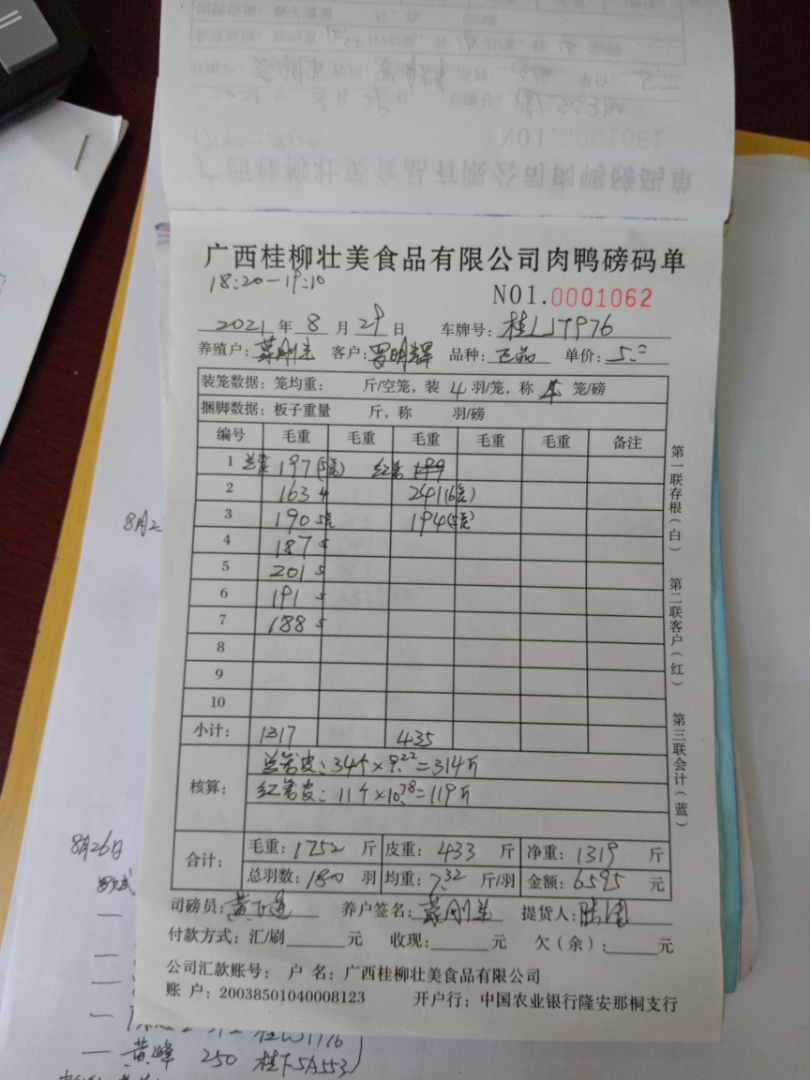 NO1.0001061
广西桂柳壮美食品有限公司肉鸭磅码单
18:20-19:10
NO1.0001062
2021年8月29日 车牌号：桂LJT976
养殖户：蒙刚 客户：罗明辉 品种： 单价：5.
装笼数据：笼均重： 斤/空笼，装 4 羽/笼，称 5 笼/磅
捆脚数据：板子重量 斤，称 羽/磅
编号 毛重 毛重 毛重 毛重 毛重 备注
1 197(5笼) 红
2 163 4 241(6笼)
3 190 5笼 194(5笼)
4 187 5
5 201 5
6 191 5
7 188 5
8
9
10
小计： 1317 435
核算： 兰笼皮：34个×9.22=314斤
红笼皮：11个×10.78=119斤
合计： 毛重：1752 斤 皮重：433 斤 净重：1319 斤
总羽数：180 羽 均重：7.32 斤/羽 金额：6595 元
司磅员：黄 养户签名：蒙刚 提货人：
付款方式：汇/刷 元 收现： 元 欠（余）： 元
公司汇款账号： 户 名：广西桂柳壮美食品有限公司
账 户：20038501040008123 开户行：中国农业银行隆安那桐支行
第一联存根（白）
第二联客户（红）
第三联会计（蓝）
8月2
8月26日
黄峰 250 桂F5A553